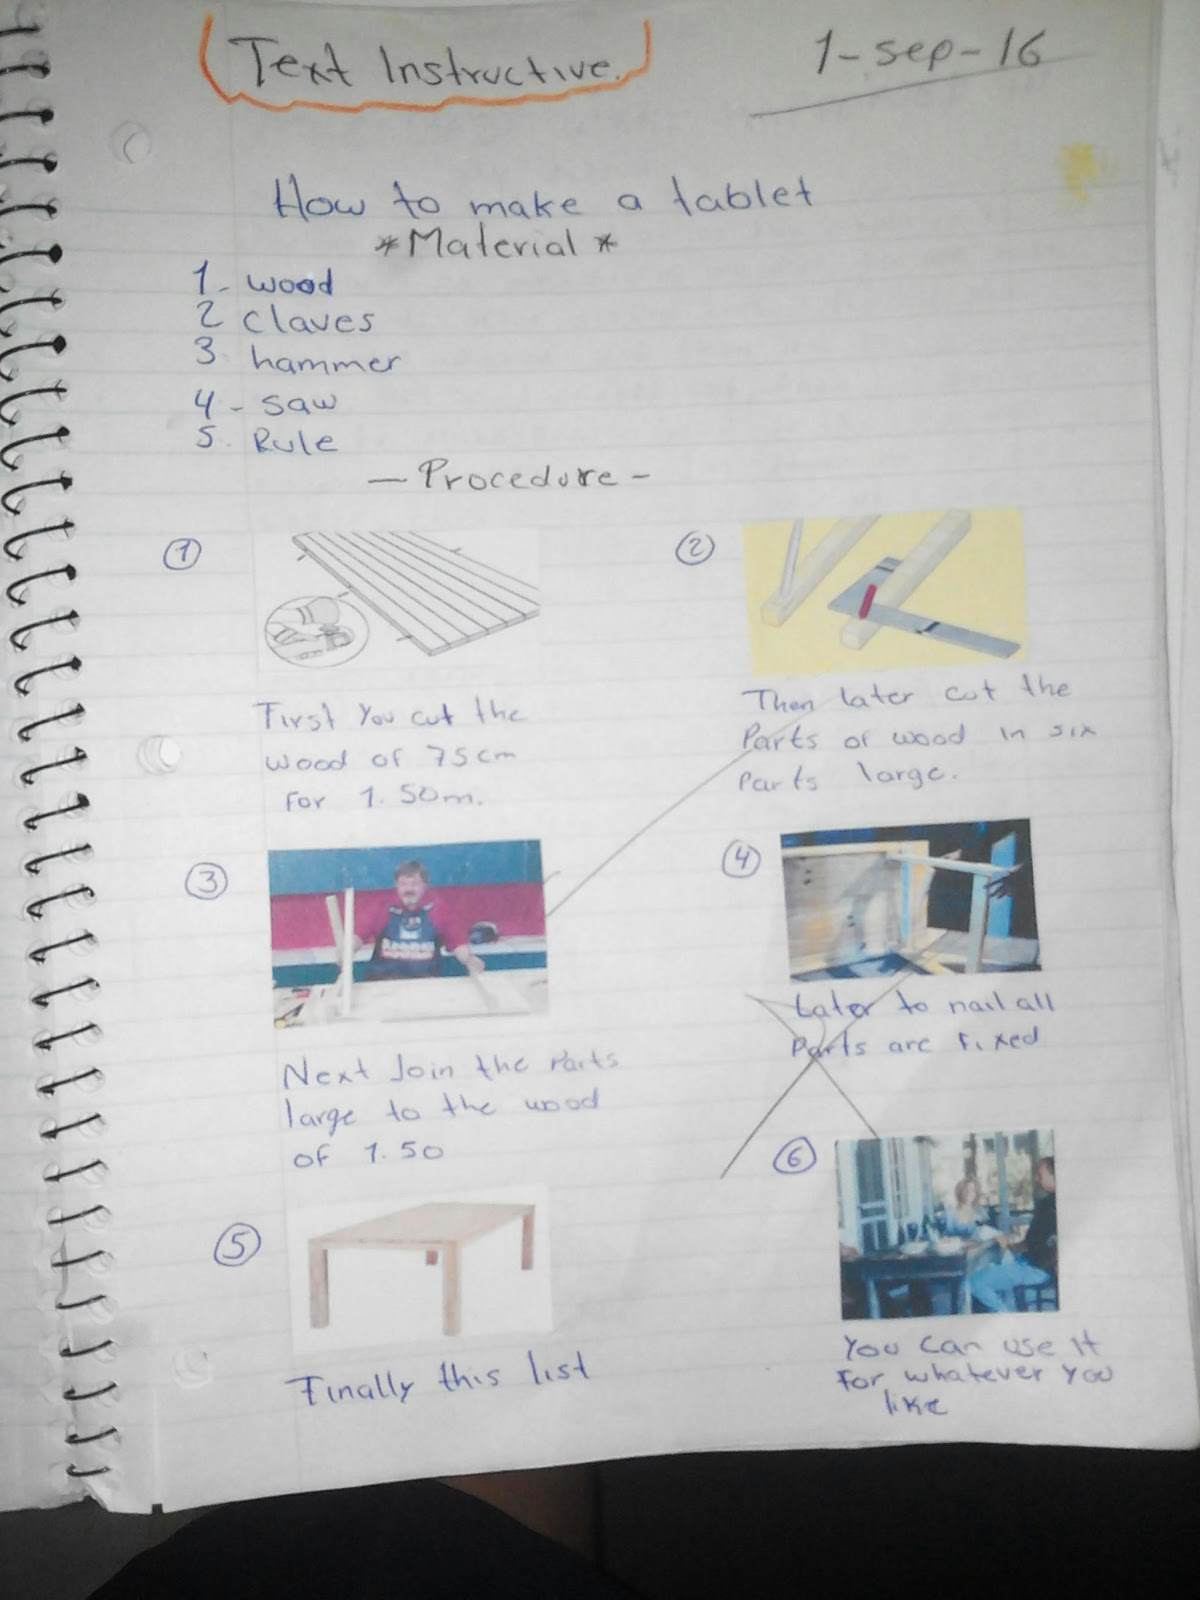 Text Instructive.
1-sep-16
How to make a tablet
*Material*
1- wood
2 claves
3 hammer
4- saw
5. Rule
—Procedure-
1
First You cut the
wood of 75cm
For 1.50m.
2
Then later cut the
Parts of wood in six
Parts large.
3
Next Join the Parts
large to the wood
of 1.50
4
Later to nail all
Parts are Fixed
5
Finally this list
6
You can use it
For whatever you
like